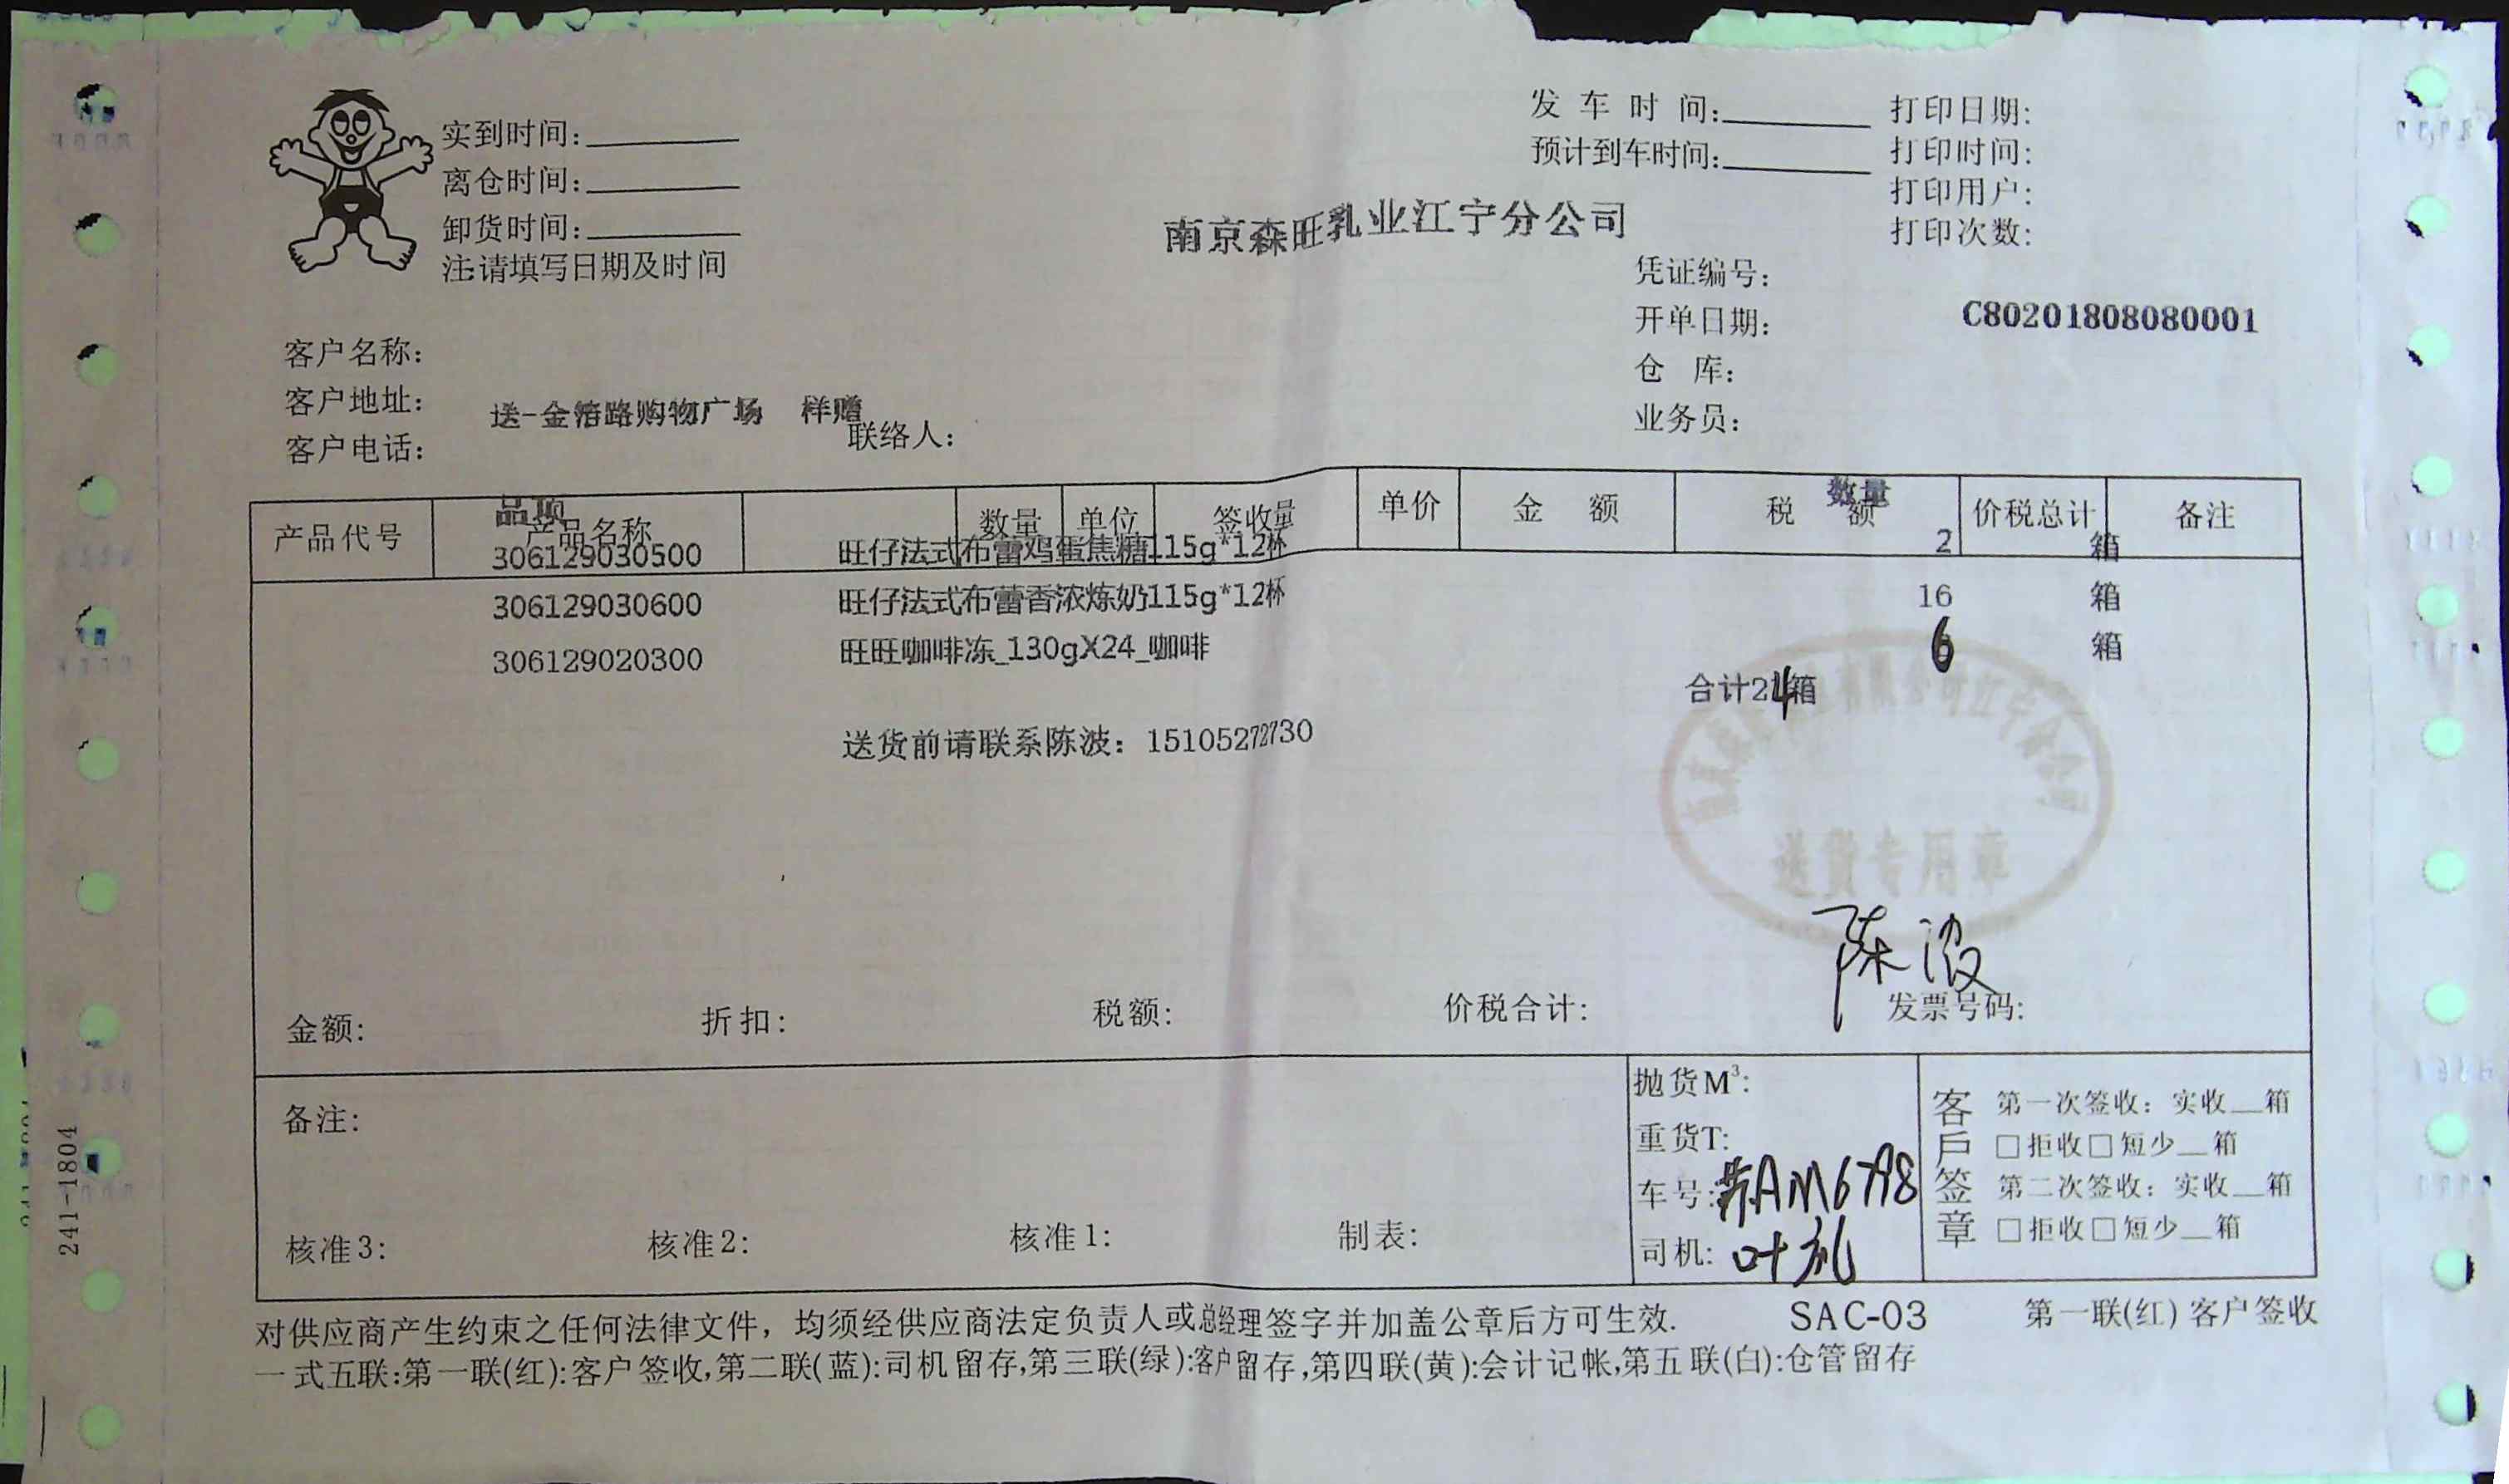 实到时间:
离仓时间:
卸货时间:
注:请填写日期及时间
发车时间:
预计到车时间:
打印日期:
打印时间:
打印用户:
打印次数:
南京森旺乳业江宁分公司
凭证编号:
开单日期:
C80201808080001
仓 库:
业务员:
客户名称:
客户地址:
送-金箔路购物广场 样赠
客户电话:
联络人:
产品代号 产品名称 数量 单位 签收量 单价 金 额 税 额 价税总计 备注
品项 数量
306129030500 旺仔法式布蕾鸡蛋焦糖115g*12杯 2 箱
306129030600 旺仔法式布蕾香浓炼奶115g*12杯 16 箱
306129020300 旺旺咖啡冻_130gX24_咖啡 6 箱
合计24箱
送货前请联系陈波: 15105272730
送货专用章
陈波
金额: 折扣: 税额: 价税合计: 发票号码:
备注:
核准3: 核准2: 核准1: 制表:
抛货M³:
重货T:
车号:苏AM6798
司机:
客戶签章
第一次签收: 实收__箱
□拒收□短少__箱
第二次签收: 实收__箱
□拒收□短少__箱
对供应商产生约束之任何法律文件, 均须经供应商法定负责人或总经理签字并加盖公章后方可生效. SAC-03 第一联(红) 客户签收
一式五联:第一联(红):客户签收,第二联(蓝):司机留存,第三联(绿):客户留存,第四联(黄):会计记帐,第五联(白):仓管留存
241-1804